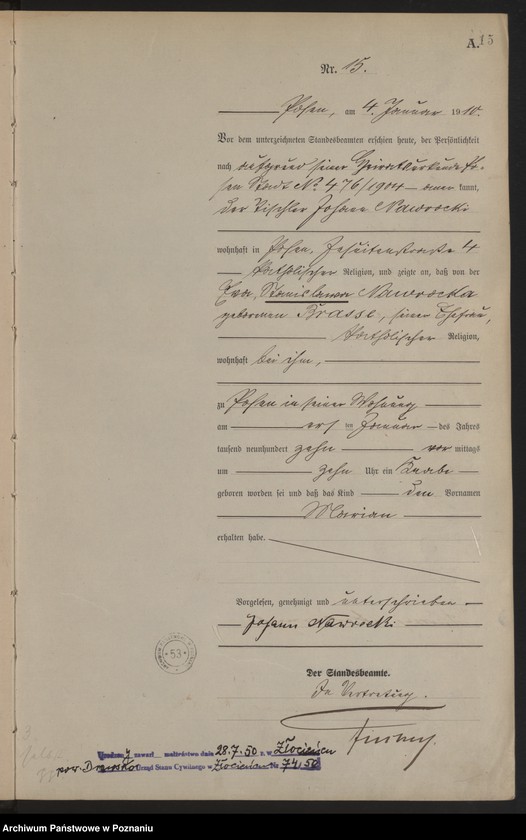 A. 15
Nr. 15.
Posen, am 4. Januar 1910.
Vor dem unterzeichneten Standesbeamten erschien heute, der Persönlichkeit
nach auf Grund seiner Heiratsurkunde Po-
sen Stadt No 476/1904 kannt,
der Tischler Johann Nawrocki
wohnhaft in Posen, Jesuitenstraße 4
katholischer Religion, und zeigte an, daß von der
Eva, Stanislawa Nawrocka
geborenen Brasse, seiner Ehefrau,
katholischer Religion,
wohnhaft bei ihm,
zu Posen in seiner Wohnung
am ersten Januar des Jahres
tausend neunhundert zehn vormittags
um zehn Uhr ein Knabe
geboren worden sei und daß das Kind den Vornamen
Marian
erhalten habe.
Vorgelesen, genehmigt und unterschrieben
Johann Nawrocki
Der Standesbeamte.
In Vertretung.
53
zawarł małżeństwo dnia 28.7.50 r. w Złocieńcu
pow. Drawsko Urząd Stanu Cywilnego w Złocieńcu Nr 74/50
Archiwum Państwowe w Poznaniu